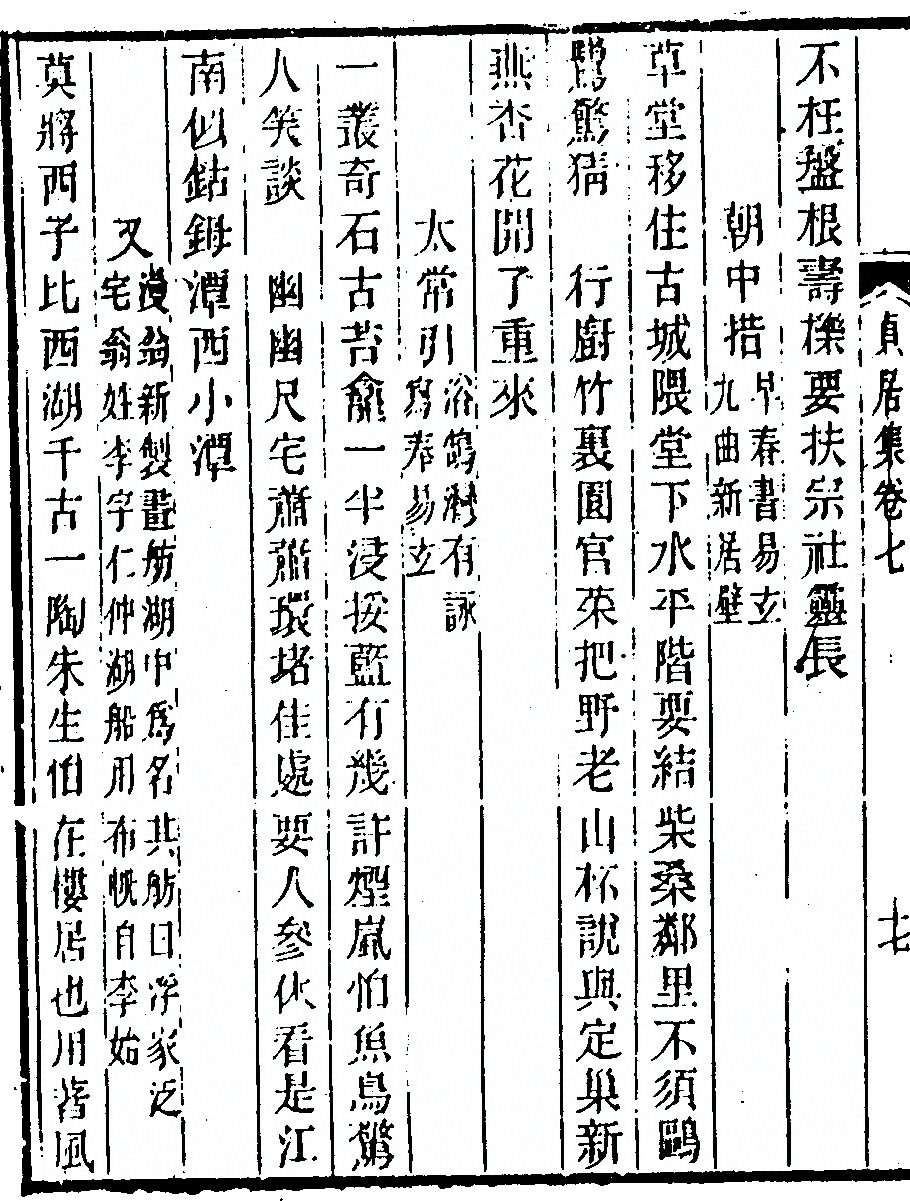 貞居集卷七
七
不枉盤根壽櫟要扶宗社靈長
朝中措 早春書易玄九曲新居壁
草堂移住古城隈堂下水平階要結柴桑鄰里不須鷗
鷺驚猜　行廚竹裏園官菜把野老山杯說與定巢新
燕杏花開了重來
太常引 浴鵠灣有詠寫奉易玄
一叢奇石古苔龕一半浸挼藍有幾許煙嵐怕魚鳥驚
人笑談　幽幽尺宅蕭蕭環堵佳處要人參伙看是江
南似鈷鉧潭西小潭
又 漫翁新製畫舫湖中爲名其舫曰浮家泛宅翁姓李字仁仲湖船用布帆自李始
莫將西子比西湖千古一陶朱生怕在樓居也用著風